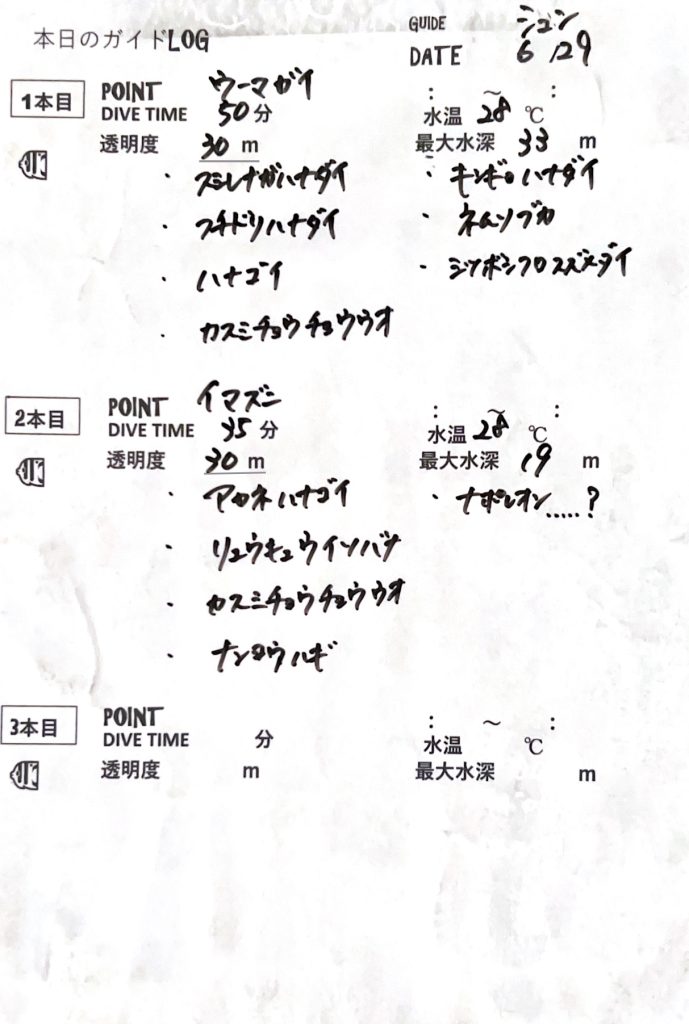 本日のガイドLOG
GUIDE ジュン
DATE 6/29
1本目
POINT ウーマガイ
: ~ :
DIVE TIME 50分
水温 28 ℃
透明度 30 m
最大水深 33 m
・スミレナガハナダイ
・キンギョハナダイ
・フチドリハナダイ
・ネムリブカ
・ハナゴイ
・ミツボシクロスズメダイ
・カスミチョウチョウウオ
2本目
POINT イマズニ
: ~ :
DIVE TIME 35 分
水温 28 ℃
透明度 30 m
最大水深 19 m
・アカネハナゴイ
・ナポレオン.....?
・リュウキュウイソバナ
・カスミチョウチョウウオ
・ナンヨウハギ
3本目
POINT
: ~ :
DIVE TIME 分
水温 ℃
透明度 m
最大水深 m